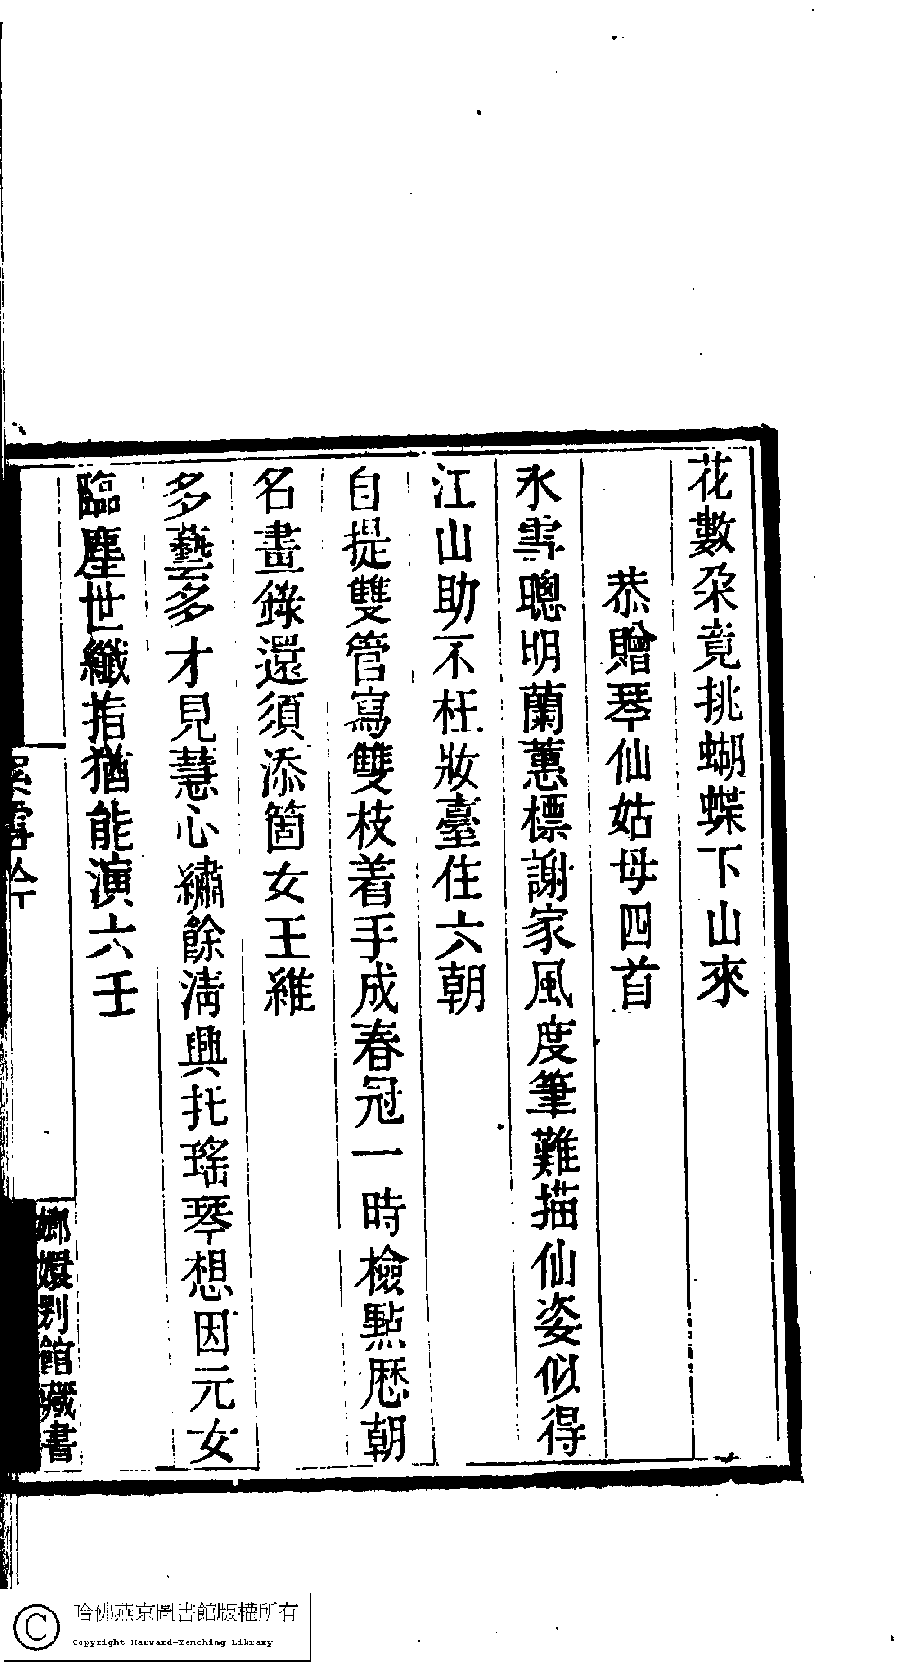 花數朶竟挑蝴蝶下山來
恭贈琴仙姑母四首
氷雪聰明蘭蕙標謝家風度筆難描仙姿似得
江山助不枉妝臺住六朝
自提雙管寫雙枝着手成春冠一時檢點歷朝
名畫錄還須添箇女王維
多藝多才見慧心繡餘淸興托瑤琴想因元女
臨塵世纖指猶能演六壬
嫏嬛別館藏書
哈佛燕京圖書館版權所有
Copyright Harvard-Yenching Library